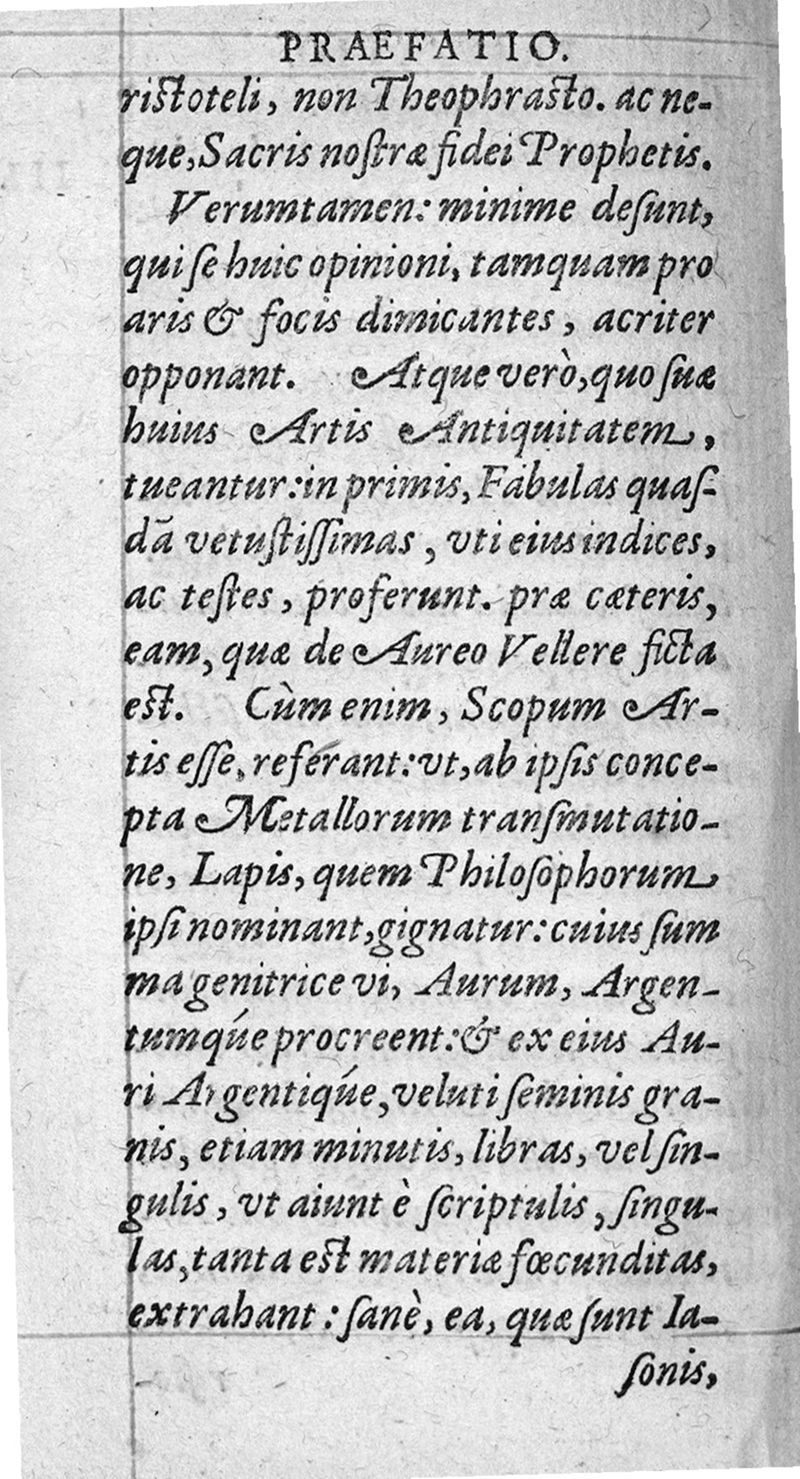 PRAEFATIO.
riſtoteli, non Theophraſto. ac ne-
que, Sacris noſtræ fidei Prophetis.
Verumtamen: minime deſunt,
qui ſe huic opinioni, tamquam pro
aris & focis dimicantes, acriter
opponant. Atque verò, quo ſuæ
huius Artis Antiquitatem,
tueantur: in primis, Fabulas quaſ-
dã vetuſtiſſimas, vti eius indices,
ac teſtes, proferunt. præ cæteris,
eam, quæ de Aureo Vellere ficta
eſt. Cùm enim, Scopum Ar-
tis eſſe, referant: vt, ab ipſis conce-
pta Metallorum tranſmutatio-
ne, Lapis, quem Philoſophorum
ipſi nominant, gignatur: cuius ſum
ma genitrice vi, Aurum, Argen-
tumq́ue procreent: & ex eius Au-
ri Argentiq́ue, veluti ſeminis gra-
nis, etiam minutis, libras, vel ſin-
gulis, vt aiunt è ſcriptulis, ſingu-
las, tanta eſt materiæ fœcunditas,
extrahant: ſanè, ea, quæ ſunt Ia-
ſonis,